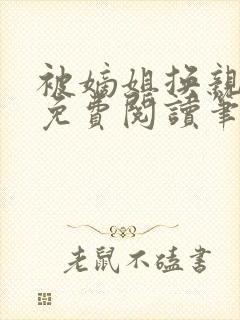 被嫡姐换親
免費閱讀筆
老鼠不磕書